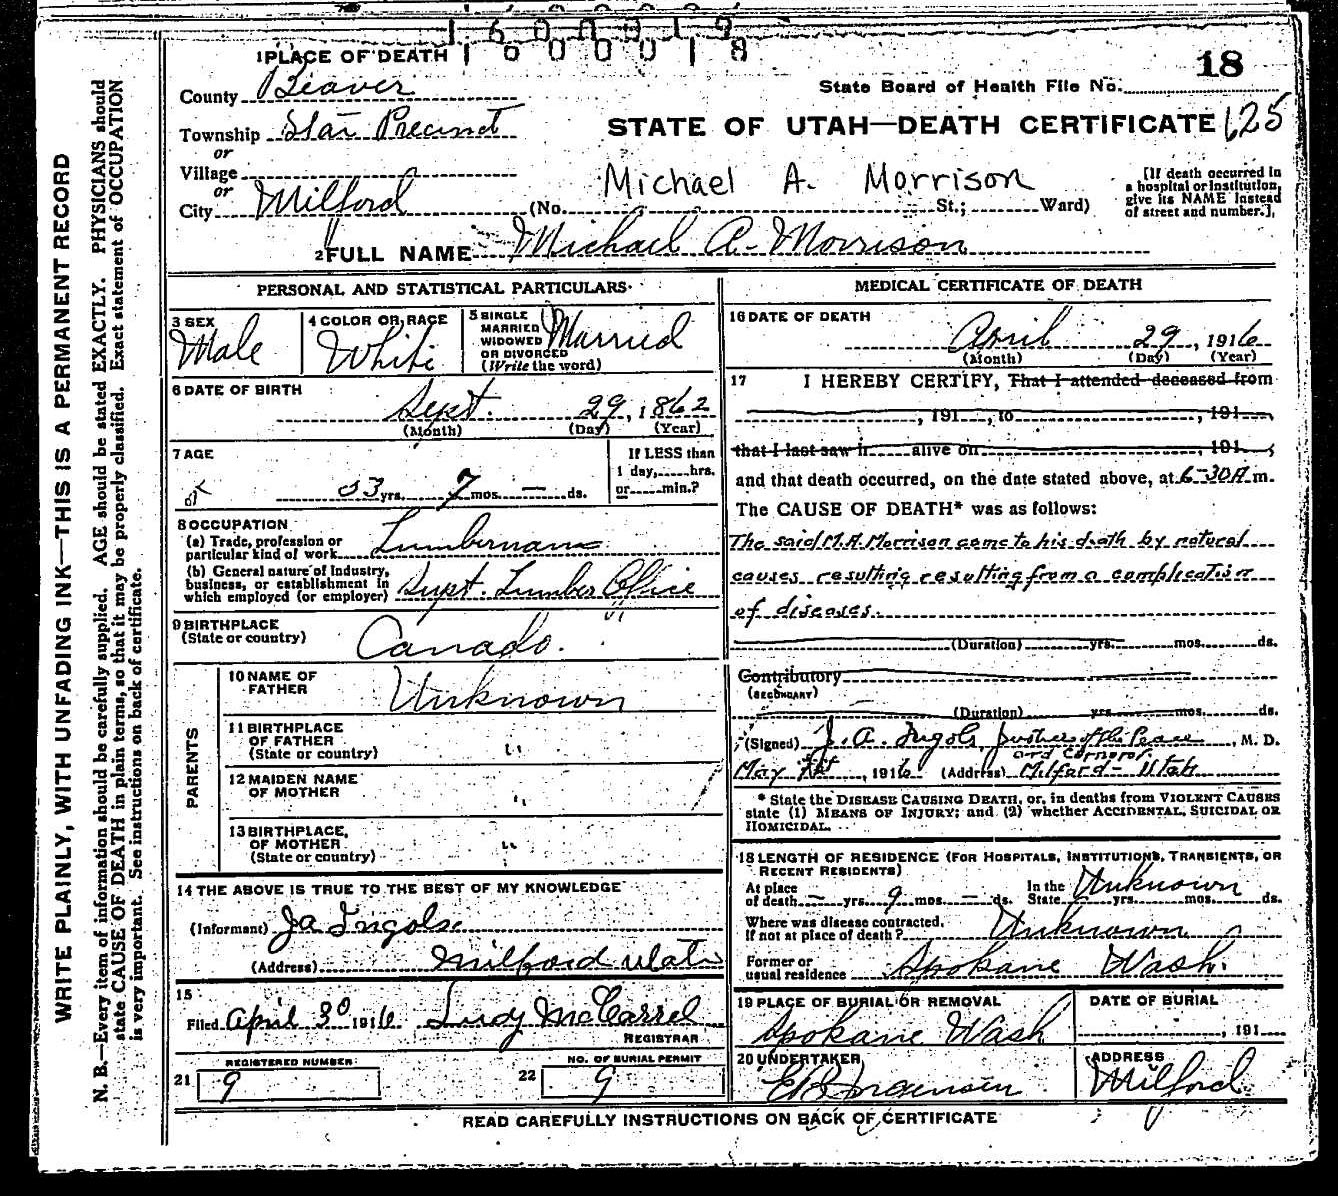 1 6 0 0 0 1 9
1 6 0 0 0 1 8
1 PLACE OF DEATH
18
County Beaver
State Board of Health File No.
Township Star Precinct
STATE OF UTAH—DEATH CERTIFICATE 125
or
Village
or
Michael A. Morrison
[If death occurred in a hospital or institution, give its NAME instead of street and number.]
City Milford (No. St.; Ward)
2 FULL NAME Michael A. Morrison
PERSONAL AND STATISTICAL PARTICULARS
3 SEX
Male
4 COLOR OR RACE
White
5 SINGLE
MARRIED
WIDOWED
OR DIVORCED
(Write the word)
Married
6 DATE OF BIRTH
Sept. 29, 1862
(Month) (Day) (Year)
7 AGE
53 yrs. 7 mos. — ds.
If LESS than
1 day, hrs.
or min.?
8 OCCUPATION
(a) Trade, profession or
particular kind of work Lumberman
(b) General nature of Industry,
business, or establishment in
which employed (or employer) Supt. Lumber Office
9 BIRTHPLACE
(State or country)
Canada.
PARENTS
10 NAME OF
FATHER
Unknown
11 BIRTHPLACE
OF FATHER
(State or country)
"
12 MAIDEN NAME
OF MOTHER
"
13 BIRTHPLACE,
OF MOTHER
(State or country)
"
14 THE ABOVE IS TRUE TO THE BEST OF MY KNOWLEDGE
(Informant) J a Ingols
(Address) Milford Utah
15
Filed April 30 1916 Ludy McCarrel
REGISTRAR
REGISTERED NUMBER
21 9
NO. OF BURIAL PERMIT
22 9
MEDICAL CERTIFICATE OF DEATH
16 DATE OF DEATH
April 29, 1916
(Month) (Day) (Year)
17 I HEREBY CERTIFY, That I attended deceased from
, 191 , to , 191
that I last saw h alive on , 191 ,
and that death occurred, on the date stated above, at 6-30 A m.
The CAUSE OF DEATH* was as follows:
The said M.A. Morrison came to his death by natural
causes resulting resulting from a complication
of diseases.
(Duration) yrs. mos. ds.
Contributory
(SECONDARY)
(Duration) yrs. mos. ds.
(Signed) J. A. Ingols Justice of the Peace, M. D.
and Cornoror
May 1st, 1916 (Address) Milford - Utah
* State the DISEASE CAUSING DEATH, or, in deaths from VIOLENT CAUSES
state (1) MEANS OF INJURY; and (2) whether ACCIDENTAL, SUICIDAL OR
HOMICIDAL.
18 LENGTH OF RESIDENCE (FOR HOSPITALS, INSTITUTIONS, TRANSIENTS, OR
RECENT RESIDENTS)
At place
of death — yrs. 9 mos. — ds.
In the
State Unknown yrs. mos. ds.
Where was disease contracted,
If not at place of death? Unknown
Former or
usual residence Spokane Wash.
19 PLACE OF BURIAL OR REMOVAL
Spokane Wash
DATE OF BURIAL
, 191
20 UNDERTAKER
E B Jorgensen
ADDRESS
Milford
READ CAREFULLY INSTRUCTIONS ON BACK OF CERTIFICATE
WRITE PLAINLY, WITH UNFADING INK—THIS IS A PERMANENT RECORD
N. B.—Every item of information should be carefully supplied. AGE should be stated EXACTLY. PHYSICIANS should
state CAUSE OF DEATH in plain terms, so that it may be properly classified. Exact statement of OCCUPATION
is very important. See instructions on back of certificate.